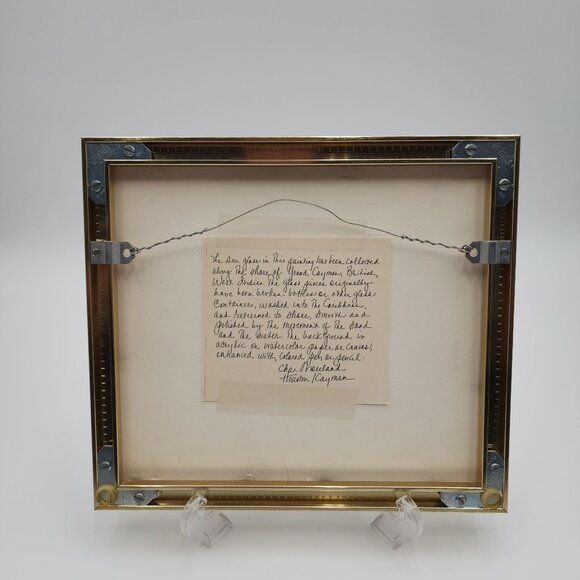 The sea glass in this painting has been collected
along the shore of Grand Cayman, British
West Indies. The glass pieces originally
have been broken bottles or other glass
containers, washed into the Caribbean
and returned to shore, smooth and
polished by the movement of the sand
and the water. The background is
acrylic on watercolor paper or canvas,
enhanced with colored pen or pencil.
Char Moreland
/Cayman